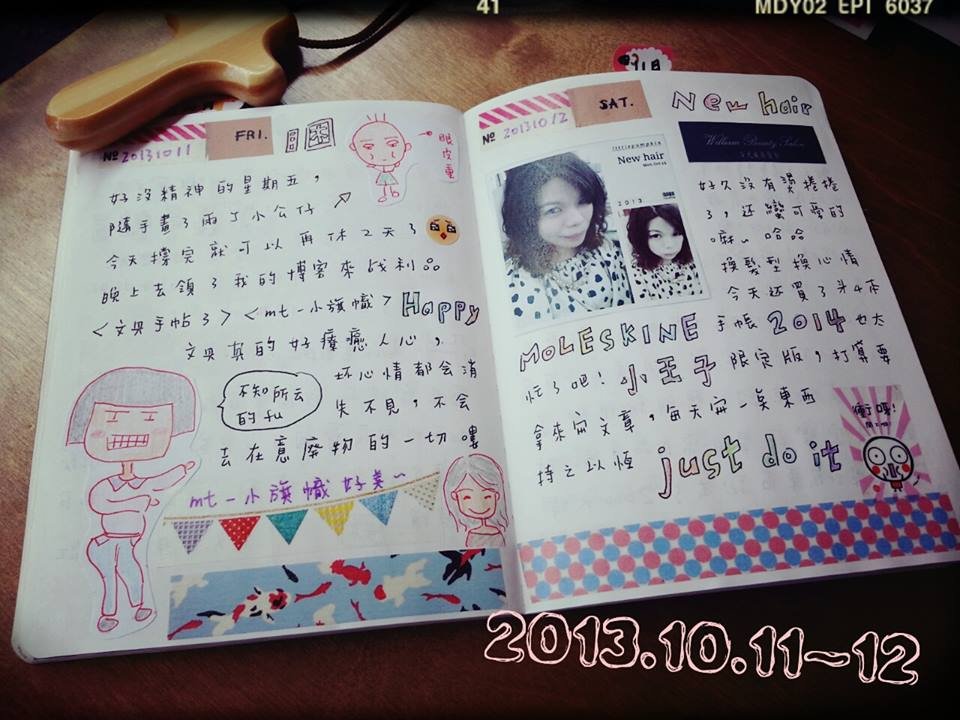 41
MDY02 EPI 6037
FRI.
№ 20131011
眼皮重
好沒精神的星期五，
隨手畫了兩個小公仔
今天撐完就可以再休2天了
晚上去領了我的博客來戰利品
<文具手帖3> <mt-小旗幟> Happy
文具真的好療癒人心，
坏心情都會消
失不見，不會
去在意廢物的一切嘍
不知所云
的fu
mt-小旗幟好美~
SAT.
New hair
№ 20131012
William Beauty Salon
New hair
2013
好久沒有燙捲捲
了，还蠻可愛的
嘛。哈哈
換髮型換心情
今天还買了第4本
MOLESKINE 手帳 2014 也太
忙了吧！小王子 限定版，打算要
拿來寫文章，每天寫一矣東西
持之以恆 just do it
衝嘎!
2013.10.11~12